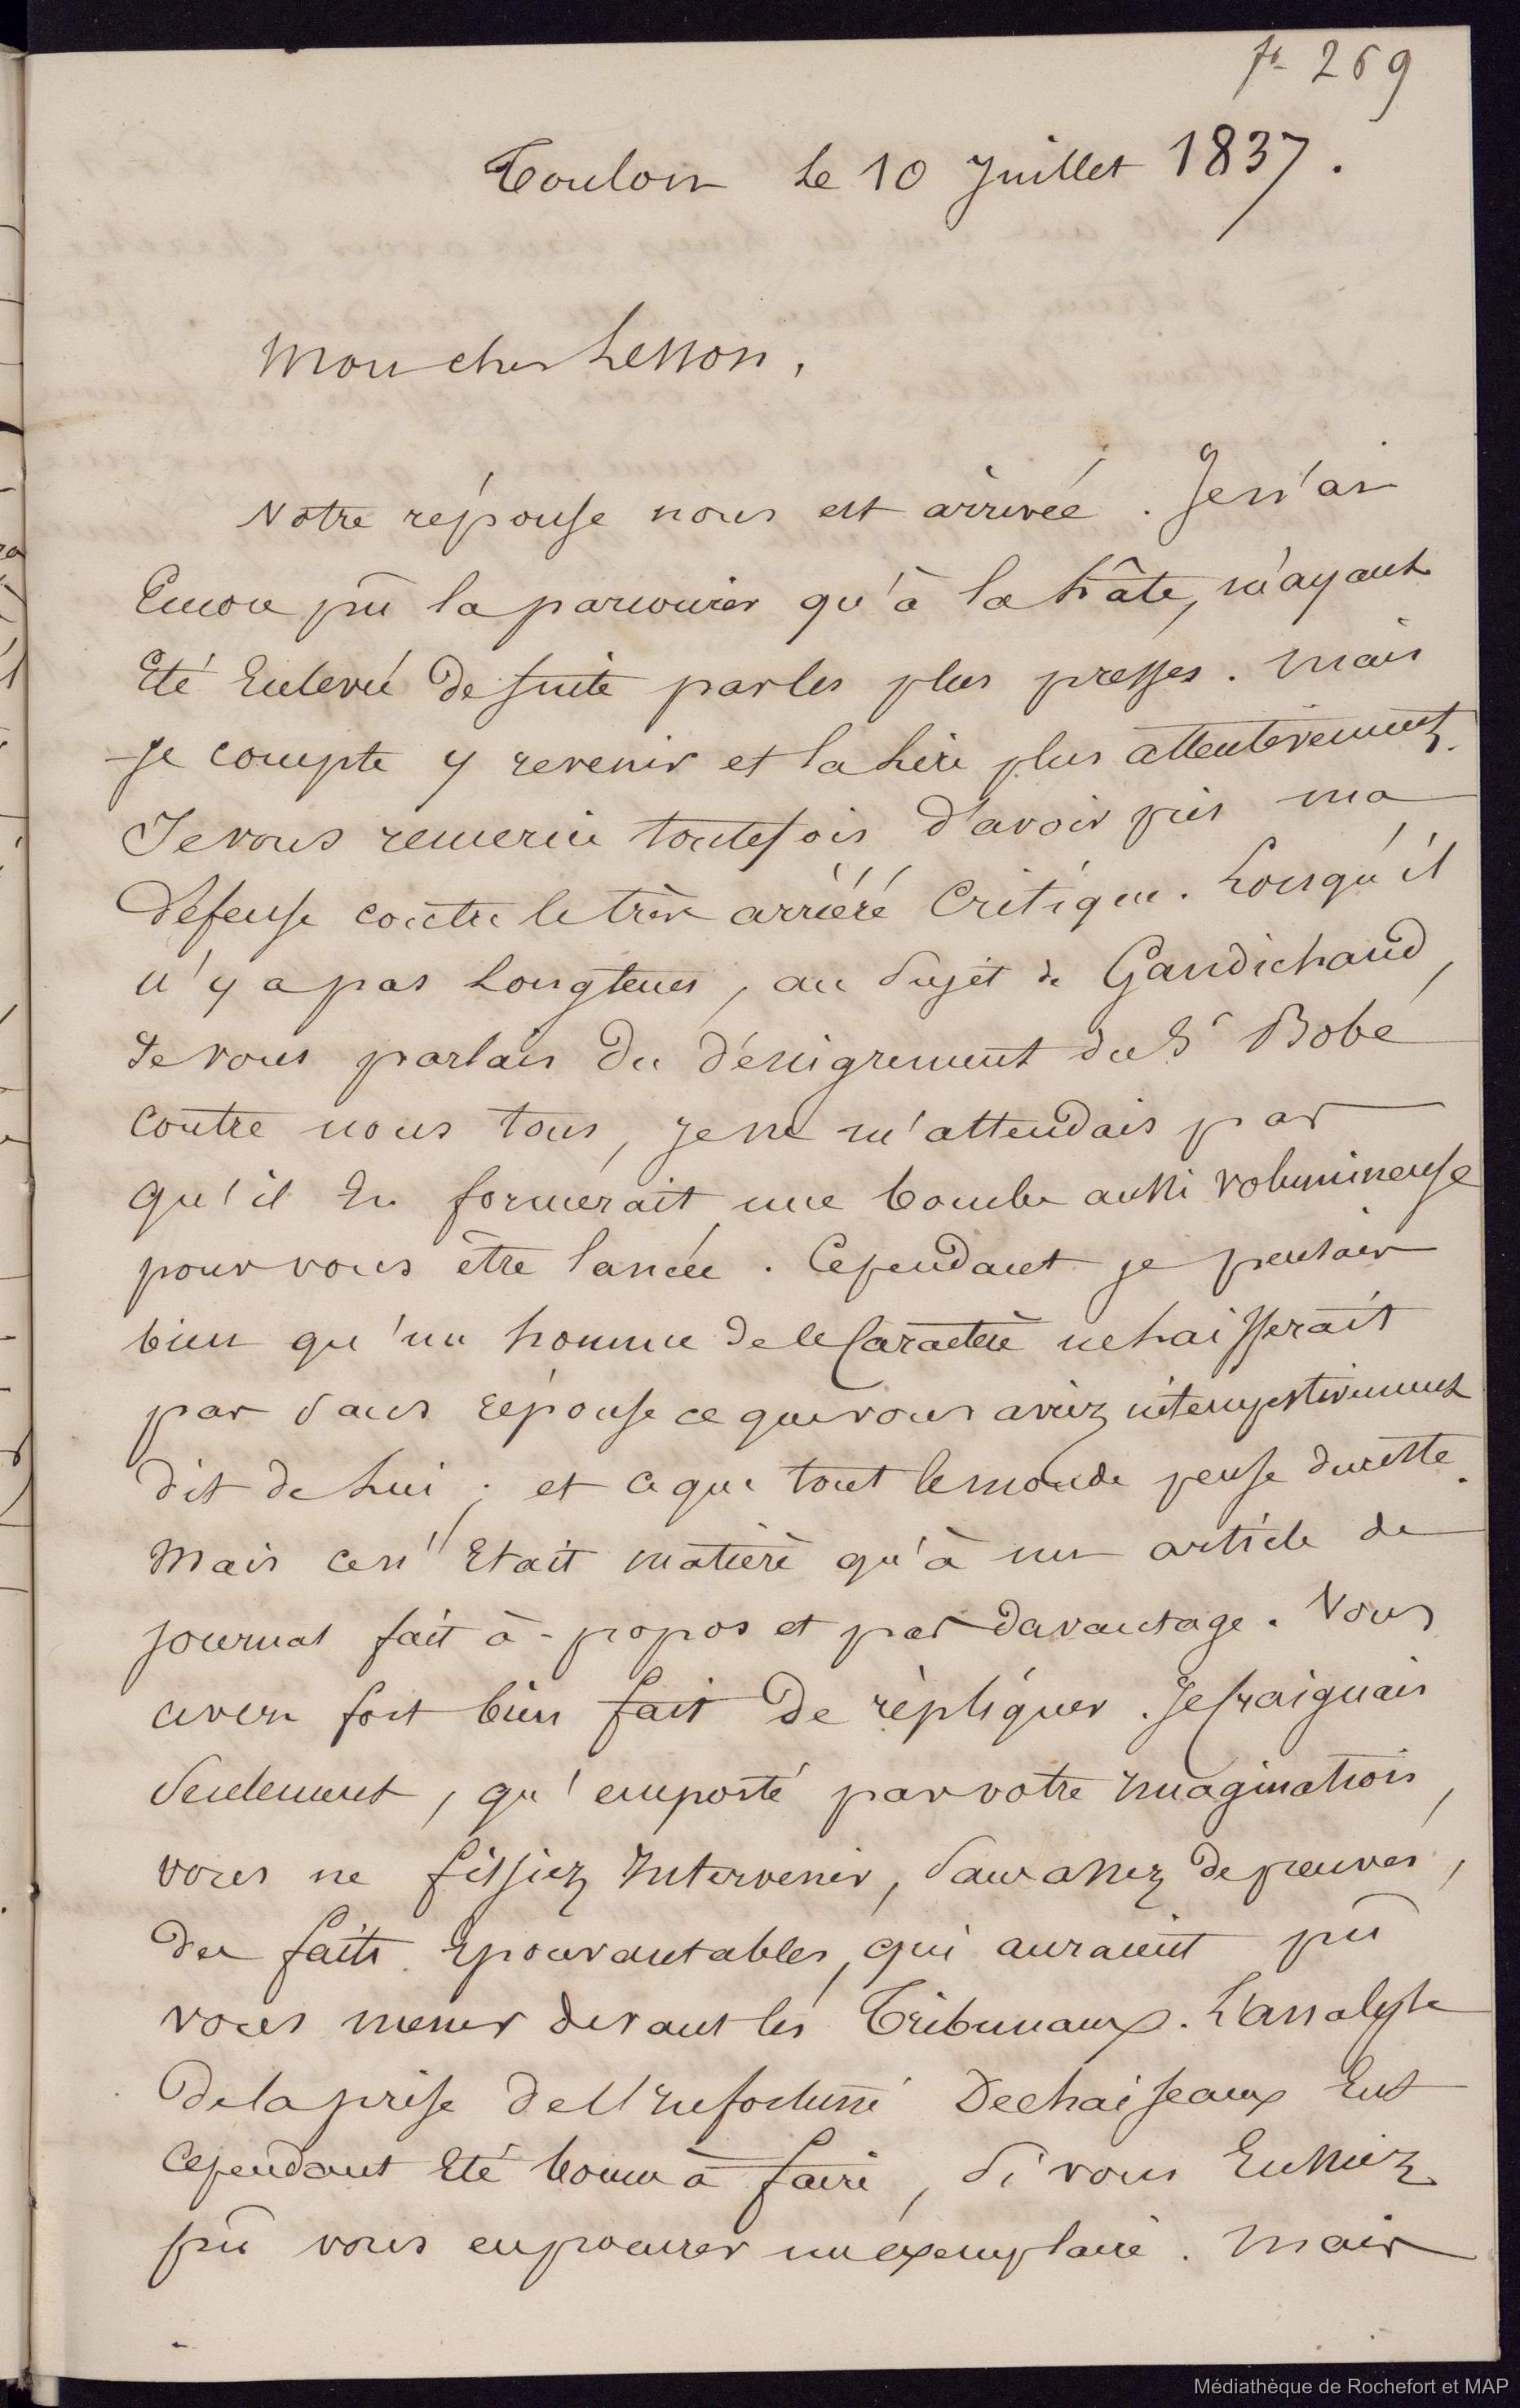 fo 269
Toulon le 10 Juillet 1837.
Mon cher Lesson,
Notre réponse nous est arrivée. Je n'ai
Encore pû la parcourir qu'à la hâte, m'ayant
Eté Enlevé de suite par les plus pressés. Mais
Je compte y revenir et la Lire plus attentivement.
Je vous remercie toutefois d'avoir pris ma
défense contre le très arriéré Critique. Lorsqu'il
n'y a pas Longtems, au Sujet de Gaudichaud,
Je vous parlais du dénigrement du Sr Bobe
contre nous tous, Je ne m'attendais pas
qu'il En formerait une bombe aussi volumineuse
pour vous être lancée. Cependant je pensais
bien qu'un homme de ce Caractère ne laisserait
pas sans réponse ce que vous aviez intempestivement
dit de Lui; et ce que tout le monde pense du reste.
Mais ce n'Etait matière qu'à un article de
Journal fait à-propos et pas davantage. Vous
avez fort bien fait de répliquer. Je Craignais
Seulement, qu'emporté par votre Imagination,
vous ne fissiez Intervenir, Sans assez de preuves,
des faits Epouvantables, qui auraient pû
vous mener devant les Tribunaux. L'analyse
de la prise de l'Infortuné Dechaiseaux Eut
Cependant Eté bonne à faire, Si vous Eussiez
pû vous en procurer un exemplaire. Mais
Médiathèque de Rochefort et MAP